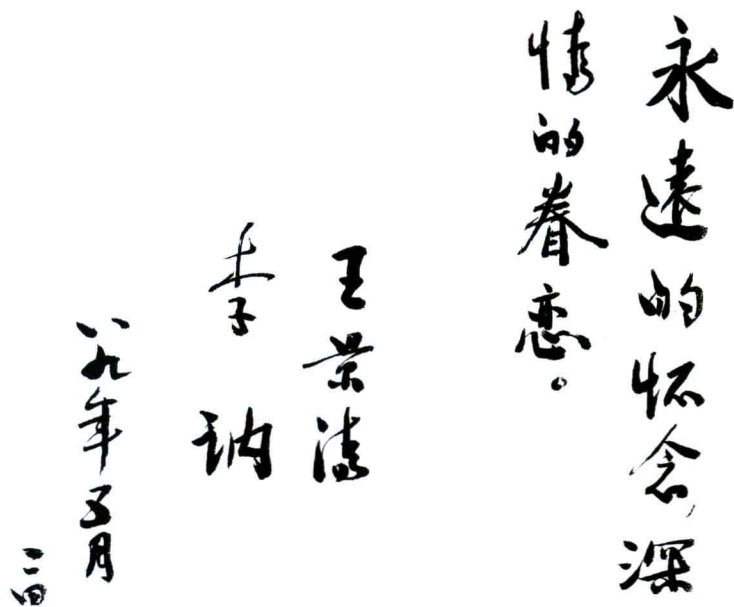 永遠的怀念,深
情的眷恋。
王景清
李 讷
八九年五月
二四